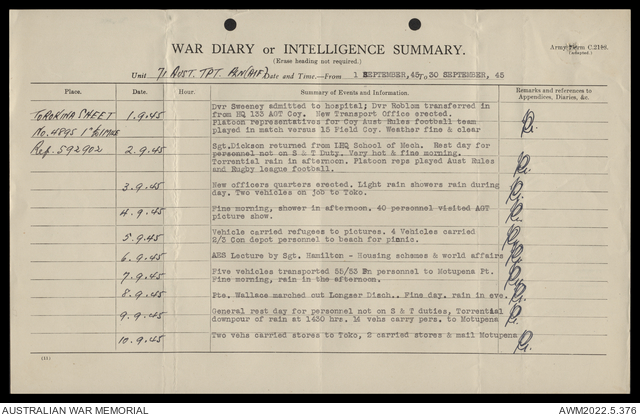 WAR DIARY or INTELLIGENCE SUMMARY.
(Erase heading not required.)
Army Form C.2186.
(Adapted.)
Unit 71 AUST. TPT. PLN (AIF) Date and Time.—From 1 SEPTEMBER, 45 TO 30 SEPTEMBER, 45
Place. Date. Hour. Summary of Events and Information. Remarks and references to Appendices, Diaries, &c.
TOROKINA SHEET 1.9.45 Dvr Sweeney admitted to hospital; Dvr Roblom transferred in
from HQ 133 AGT Coy. New Transport Office erected.
No. 4895 1" to 1 MILE Platoon representatives for Coy Aust Rules football team
played in match versus 15 Field Coy. Weather fine & clear
Ref. 592902 2.9.45 Sgt.Dickson returned from LHQ School of Mech. Rest day for
personnel not on S & T Duty. Very hot & fine morning.
Torrential rain in afternoon. Platoon reps played Aust Rules
and Rugby league football.
3.9.45 New officers quarters erected. Light rain showers rain during
day. Two vehicles on job to Toko.
4.9.45 Fine morning, shower in afternoon. 40 personnel visited AGT
picture show.
5.9.45 Vehicle carried refugees to pictures. 4 Vehicles carried
2/3 Con depot personnel to beach for picnic.
6.9.45 AES Lecture by Sgt. Hamilton - Housing schemes & world affairs
7.9.45 Five vehicles transported 55/53 Bn personnel to Motupena Pt.
Fine morning, rain in the afternoon.
8.9.45 Pte. Wallace marched out Longser Disch.. Fine day, rain in eve.
9.9.45 General rest day for personnel not on S & T duties, Torrential
downpour of rain at 1430 hrs. 14 vehs carry pers. to Motupena
10.9.45 Two vehs carried stores to Toko, 2 carried stores & mail Motupena
AUSTRALIAN WAR MEMORIAL
AWM2022.5.376